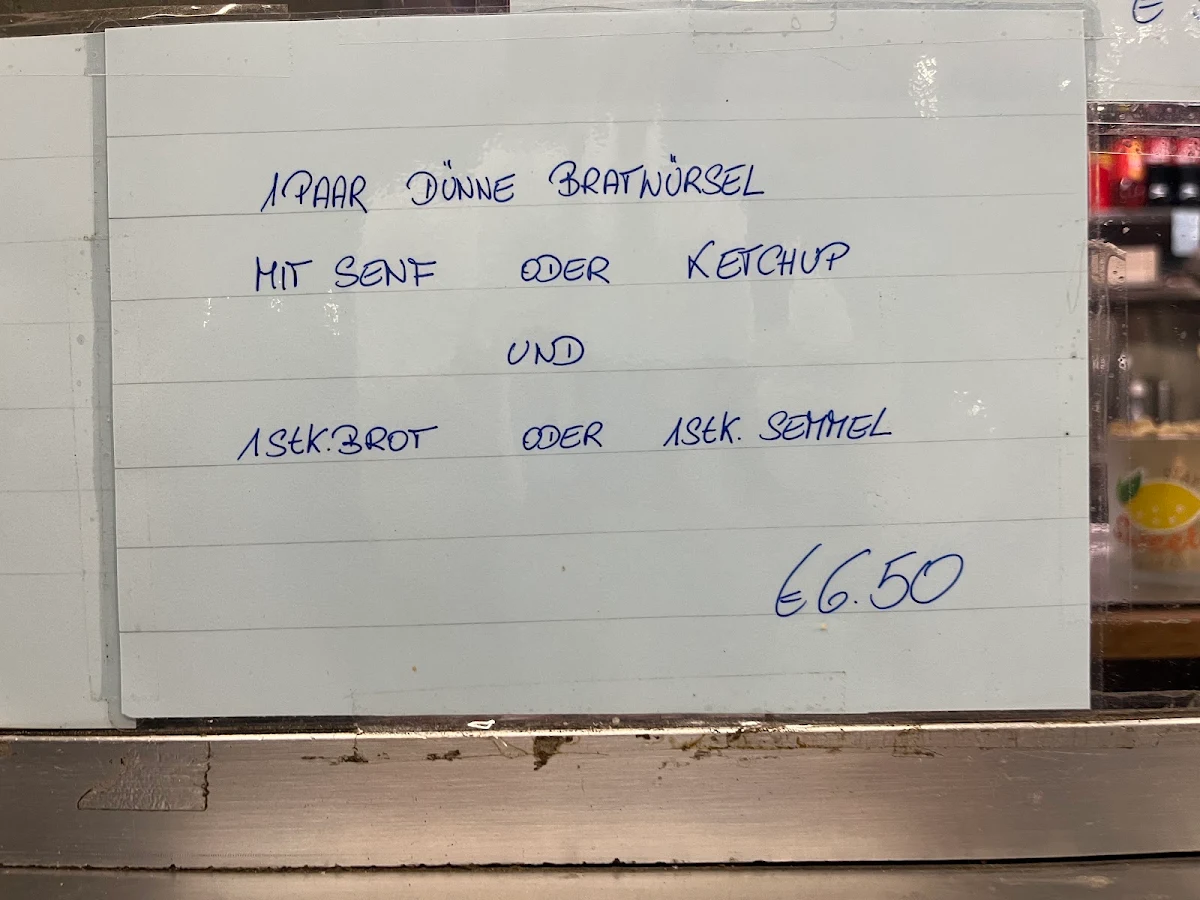 1 PAAR DÜNNE BRATWÜRSEL
MIT SENF ODER KETCHUP
UND
1 StK. BROT ODER 1 StK. SEMMEL
€ 6.50
€